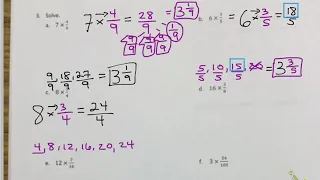 3. Solve.
a. 7 × 4/9
7 × 4/9 = 28/9 = 3 1/9
9/9 9/9 9/9 1/9
9/9, 18/9, 27/9 = 3 1/9
b. 6 × 3/5
= 6 × 3/5 = 18/5
5/5, 10/5, 15/5, = 3 3/5
c. 8 × 3/4
8 × 3/4 = 24/4
4, 8, 12, 16, 20, 24
d. 16 ×
e. 12 × 7/10
f. 3 × 54/100